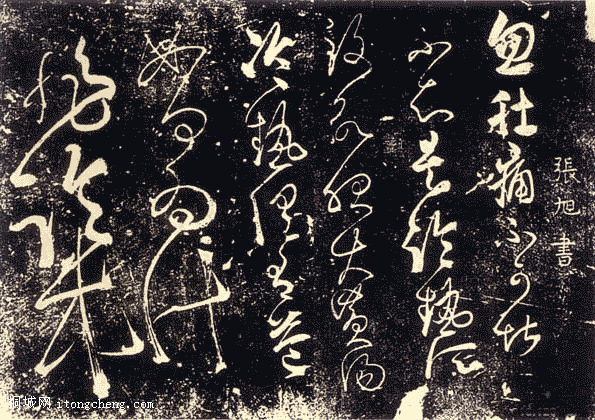 張旭書
忽肚痛不可堪
不知是冷熱所
致欲服大黃湯
冷熱俱有益
如何為計
非臨床
桐城网 itongcheng.com